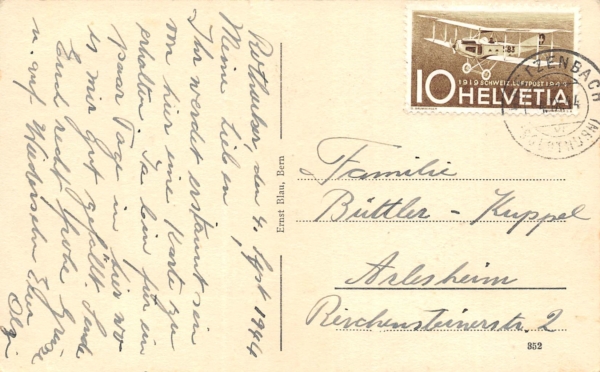 den 4. Sept 1944
Meine Lieben,
Ihr werdet erstaunt sein
von hier eine Karte zu
erhalten. Ja bin für ein
paar Tage in hier wo
es mir gut gefällt. Sende
Euch recht frohe Grüsse
u. auf Wiedersehn Eure
Olgi
Ernst Blau, Bern
1919 SCHWEIZ. LUFTPOST 1944
10 HELVETIA
Familie
Büttler - Kuppel
Arlesheim
Reichensteinerstr. 2
352